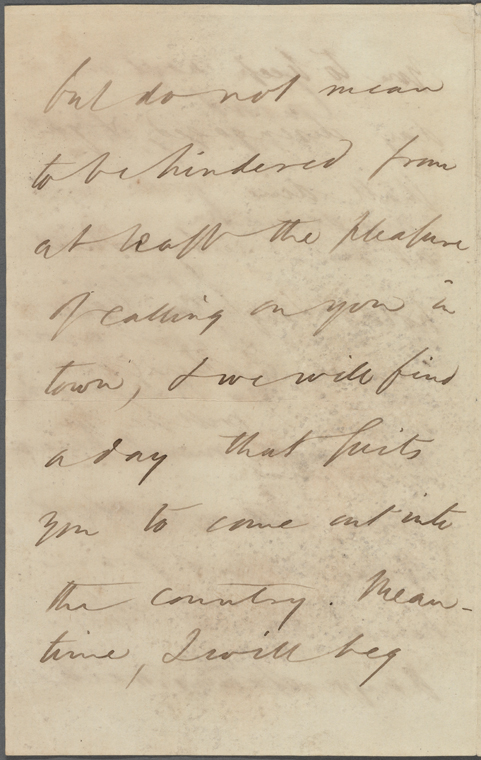 but do not mean
to be hindered from
at least the pleasure
of calling on you in
town, & we will find
a day that suits
you to come out into
the country. Mean-
time, I will beg